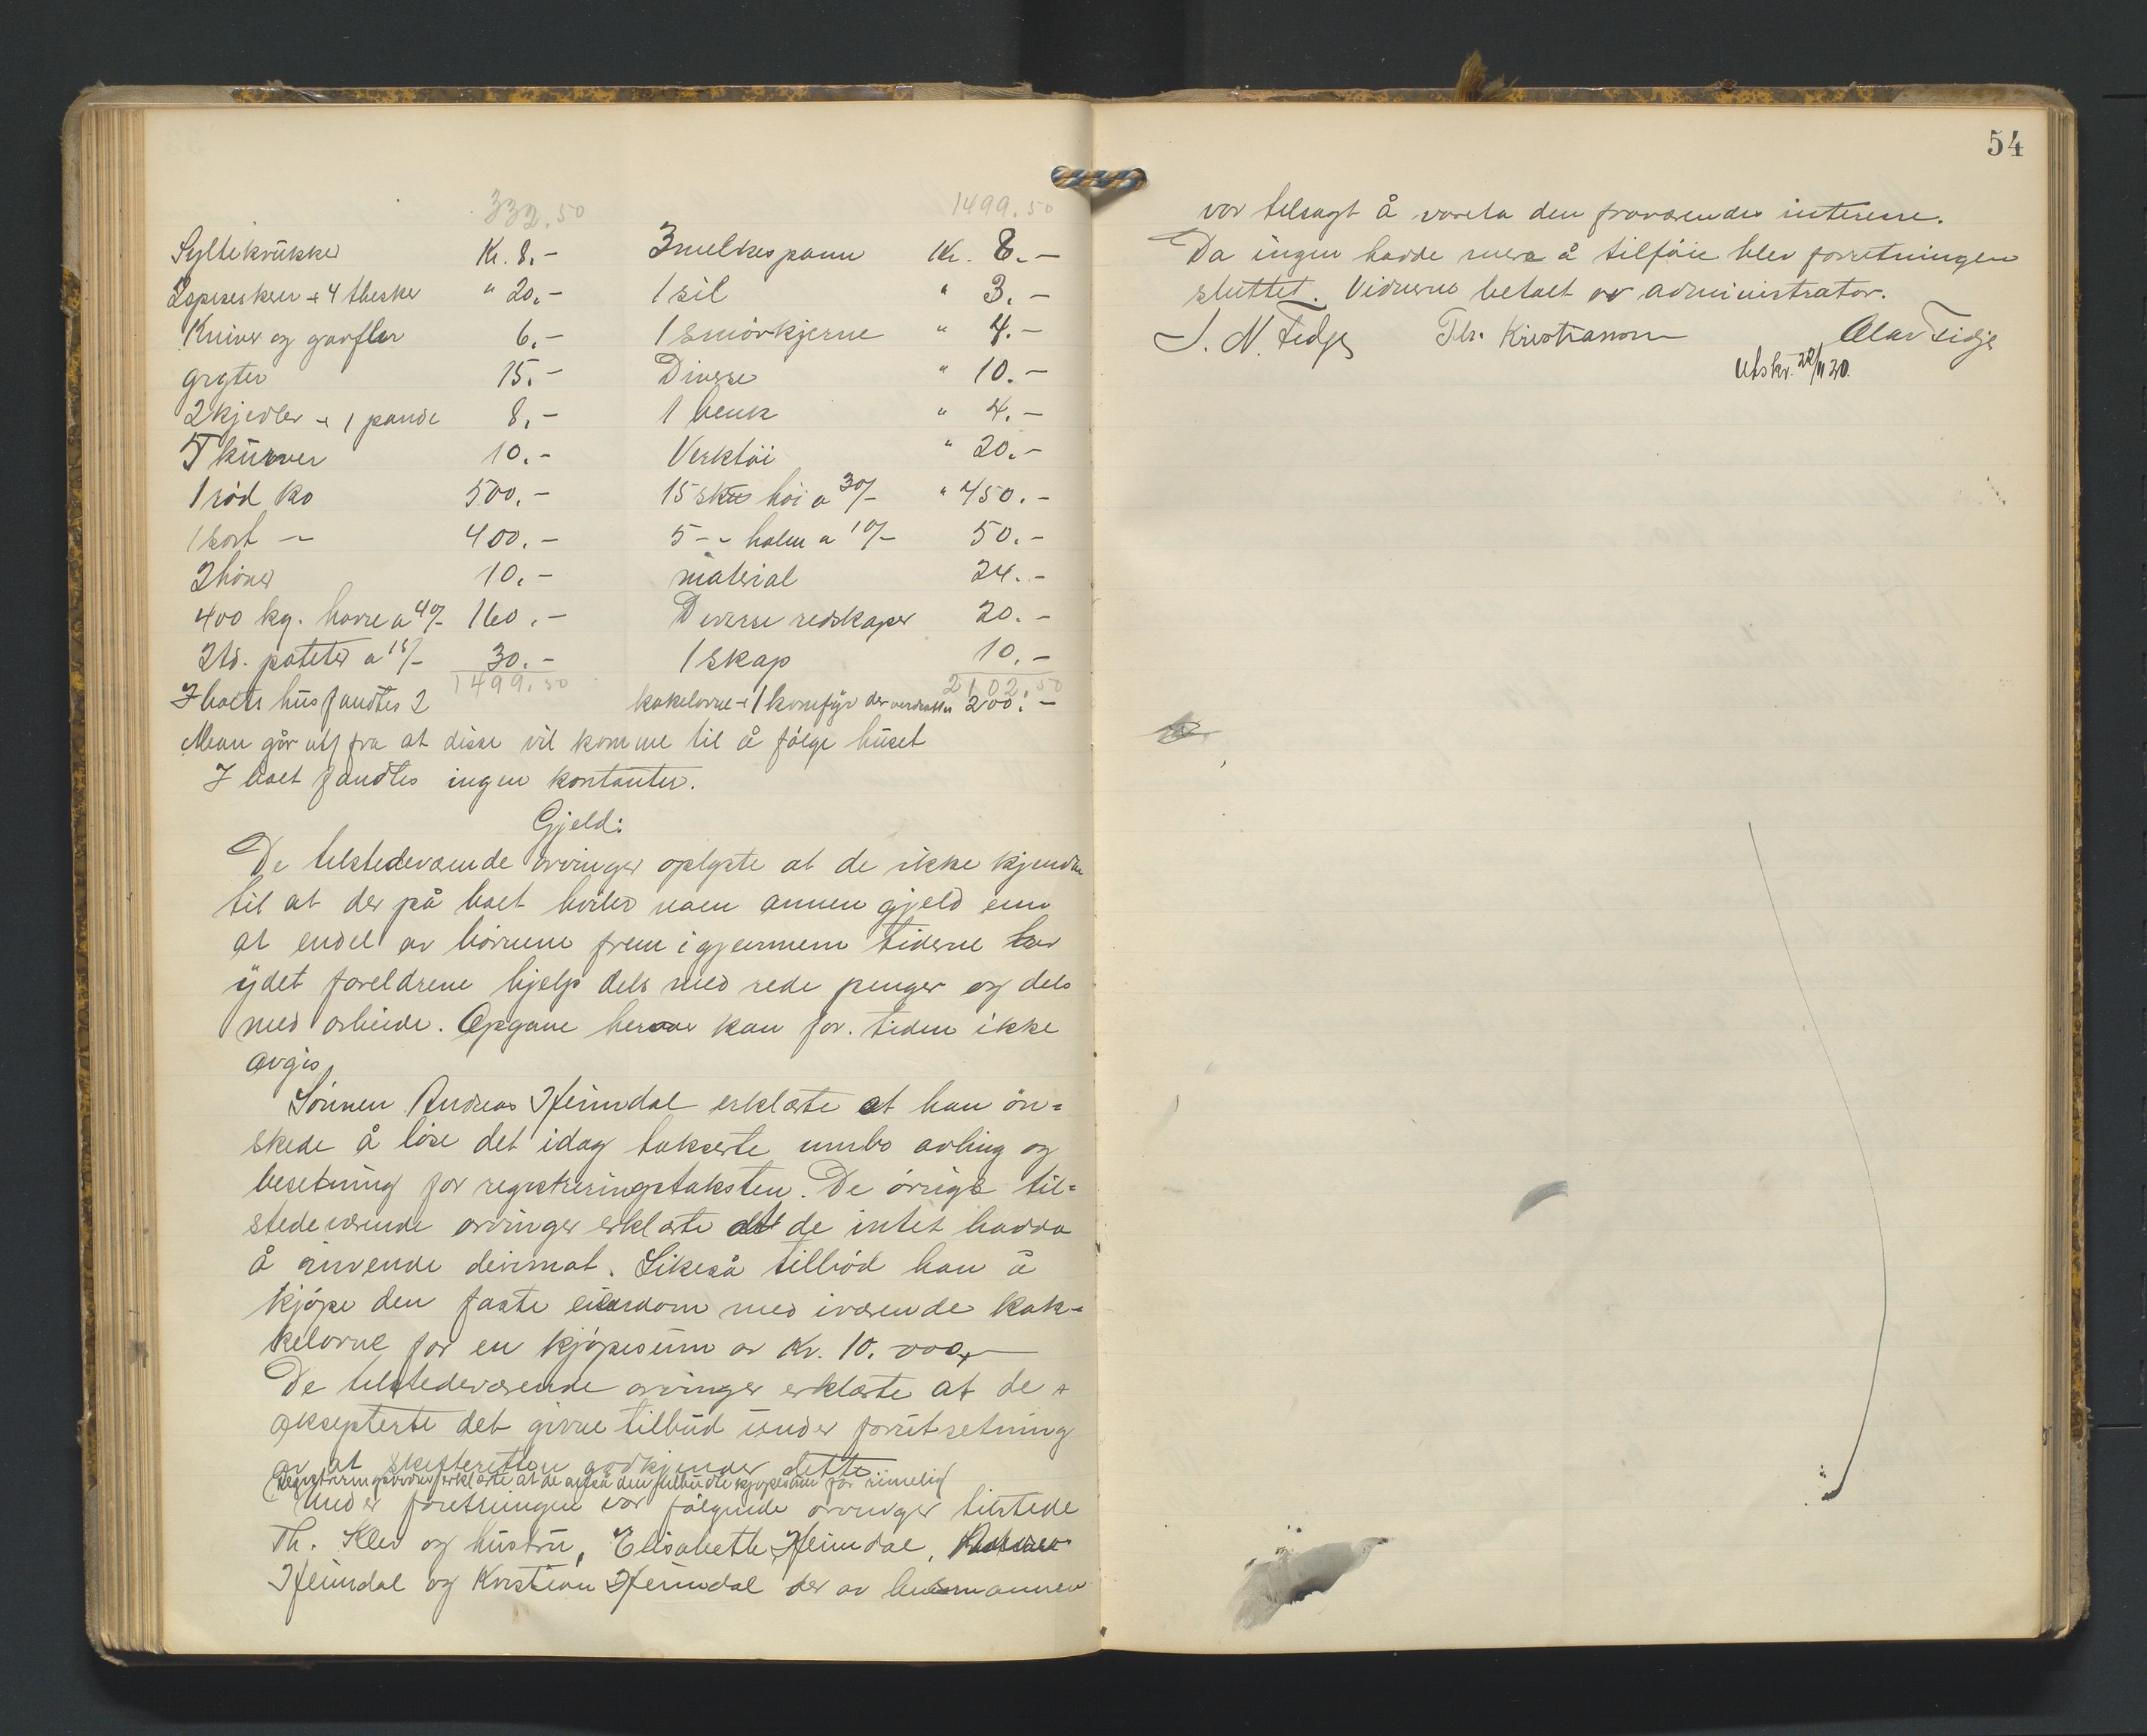 332,50
Syltekrukker Kr. 8.-
2 spiseskeer + 4 thesker " 20.-
Kniver og gaafler 6.-
gryter 15.-
2 kjedler + 1 pande 8.-
5 kurver 10.-
1 rød ko 500.-
1 sort - 400.-
2 høner 10.-
400 kg. havre a 40/- 160.-
2 td. poteter a 15/- 30.-
1499.50
1499.50
3 melkespann Kr. 8.-
1 sil " 3.-
1 smørkjerne " 4.-
Diverse " 10.-
1 benk " 4.-
Verktøi " 20.-
15 høi a 30/- " 450.-
5 -"- halm a 10/- 50.-
material 24.-
Diverse redskaper 20.-
1 skap 10.-
2102.50
I boets hus fandtes 2 kakelovne + 1 komfyr der 200.-
Man går ut fra at disse vil komme til å følge huset
I boet fandtes ingen kontanter.
Gjeld:
De tilstedeværende arvinger oplyste at de ikke kjendte
til at der på boet hviler noen annen gjeld enn
at endel av børnene frem igjennem tiderne har
ydet foreldrene hjelp dels med rede penger og dels
med arbeide. Opgave herover kan for. tiden ikke
avgis.
Sønnen Andreas Heimdal erklærte at han øn=
skede å løse det idag takserte innbo avling og
besetning for registreringstaksten. De øvrige til=
stedeværende arvinger erklærte at de intet hadde
å invende derimot. Likeså tilbød han å
kjøpe den faste eiendom med iværende kak-
kelovne for en kjøpesum av Kr. 10.000,-
De tilstedeværende arvinger erklærte at de
aksepterte det givne tilbud under forutsetning
av at skifteretten godkjender dette.
(Registreringsvidnerne erklærte at de anså den tilbudte kjøpesum for rimelig)
Under forretningen var følgende arvinger tilstede
Th. Klev og hustru, Elisabeth Heimdal,
Heimdal og Kristian Heimdal der av lensmannen
54
var tilsagt å vareta den fraværendes interesse.
Da ingen hadde mera å tilføie blev forretningen
sluttet. Vidnerne betalt av administrator.
J. N. Fidje Th. Kristiansen Olav Fidje
Utskr. 22/11 20.